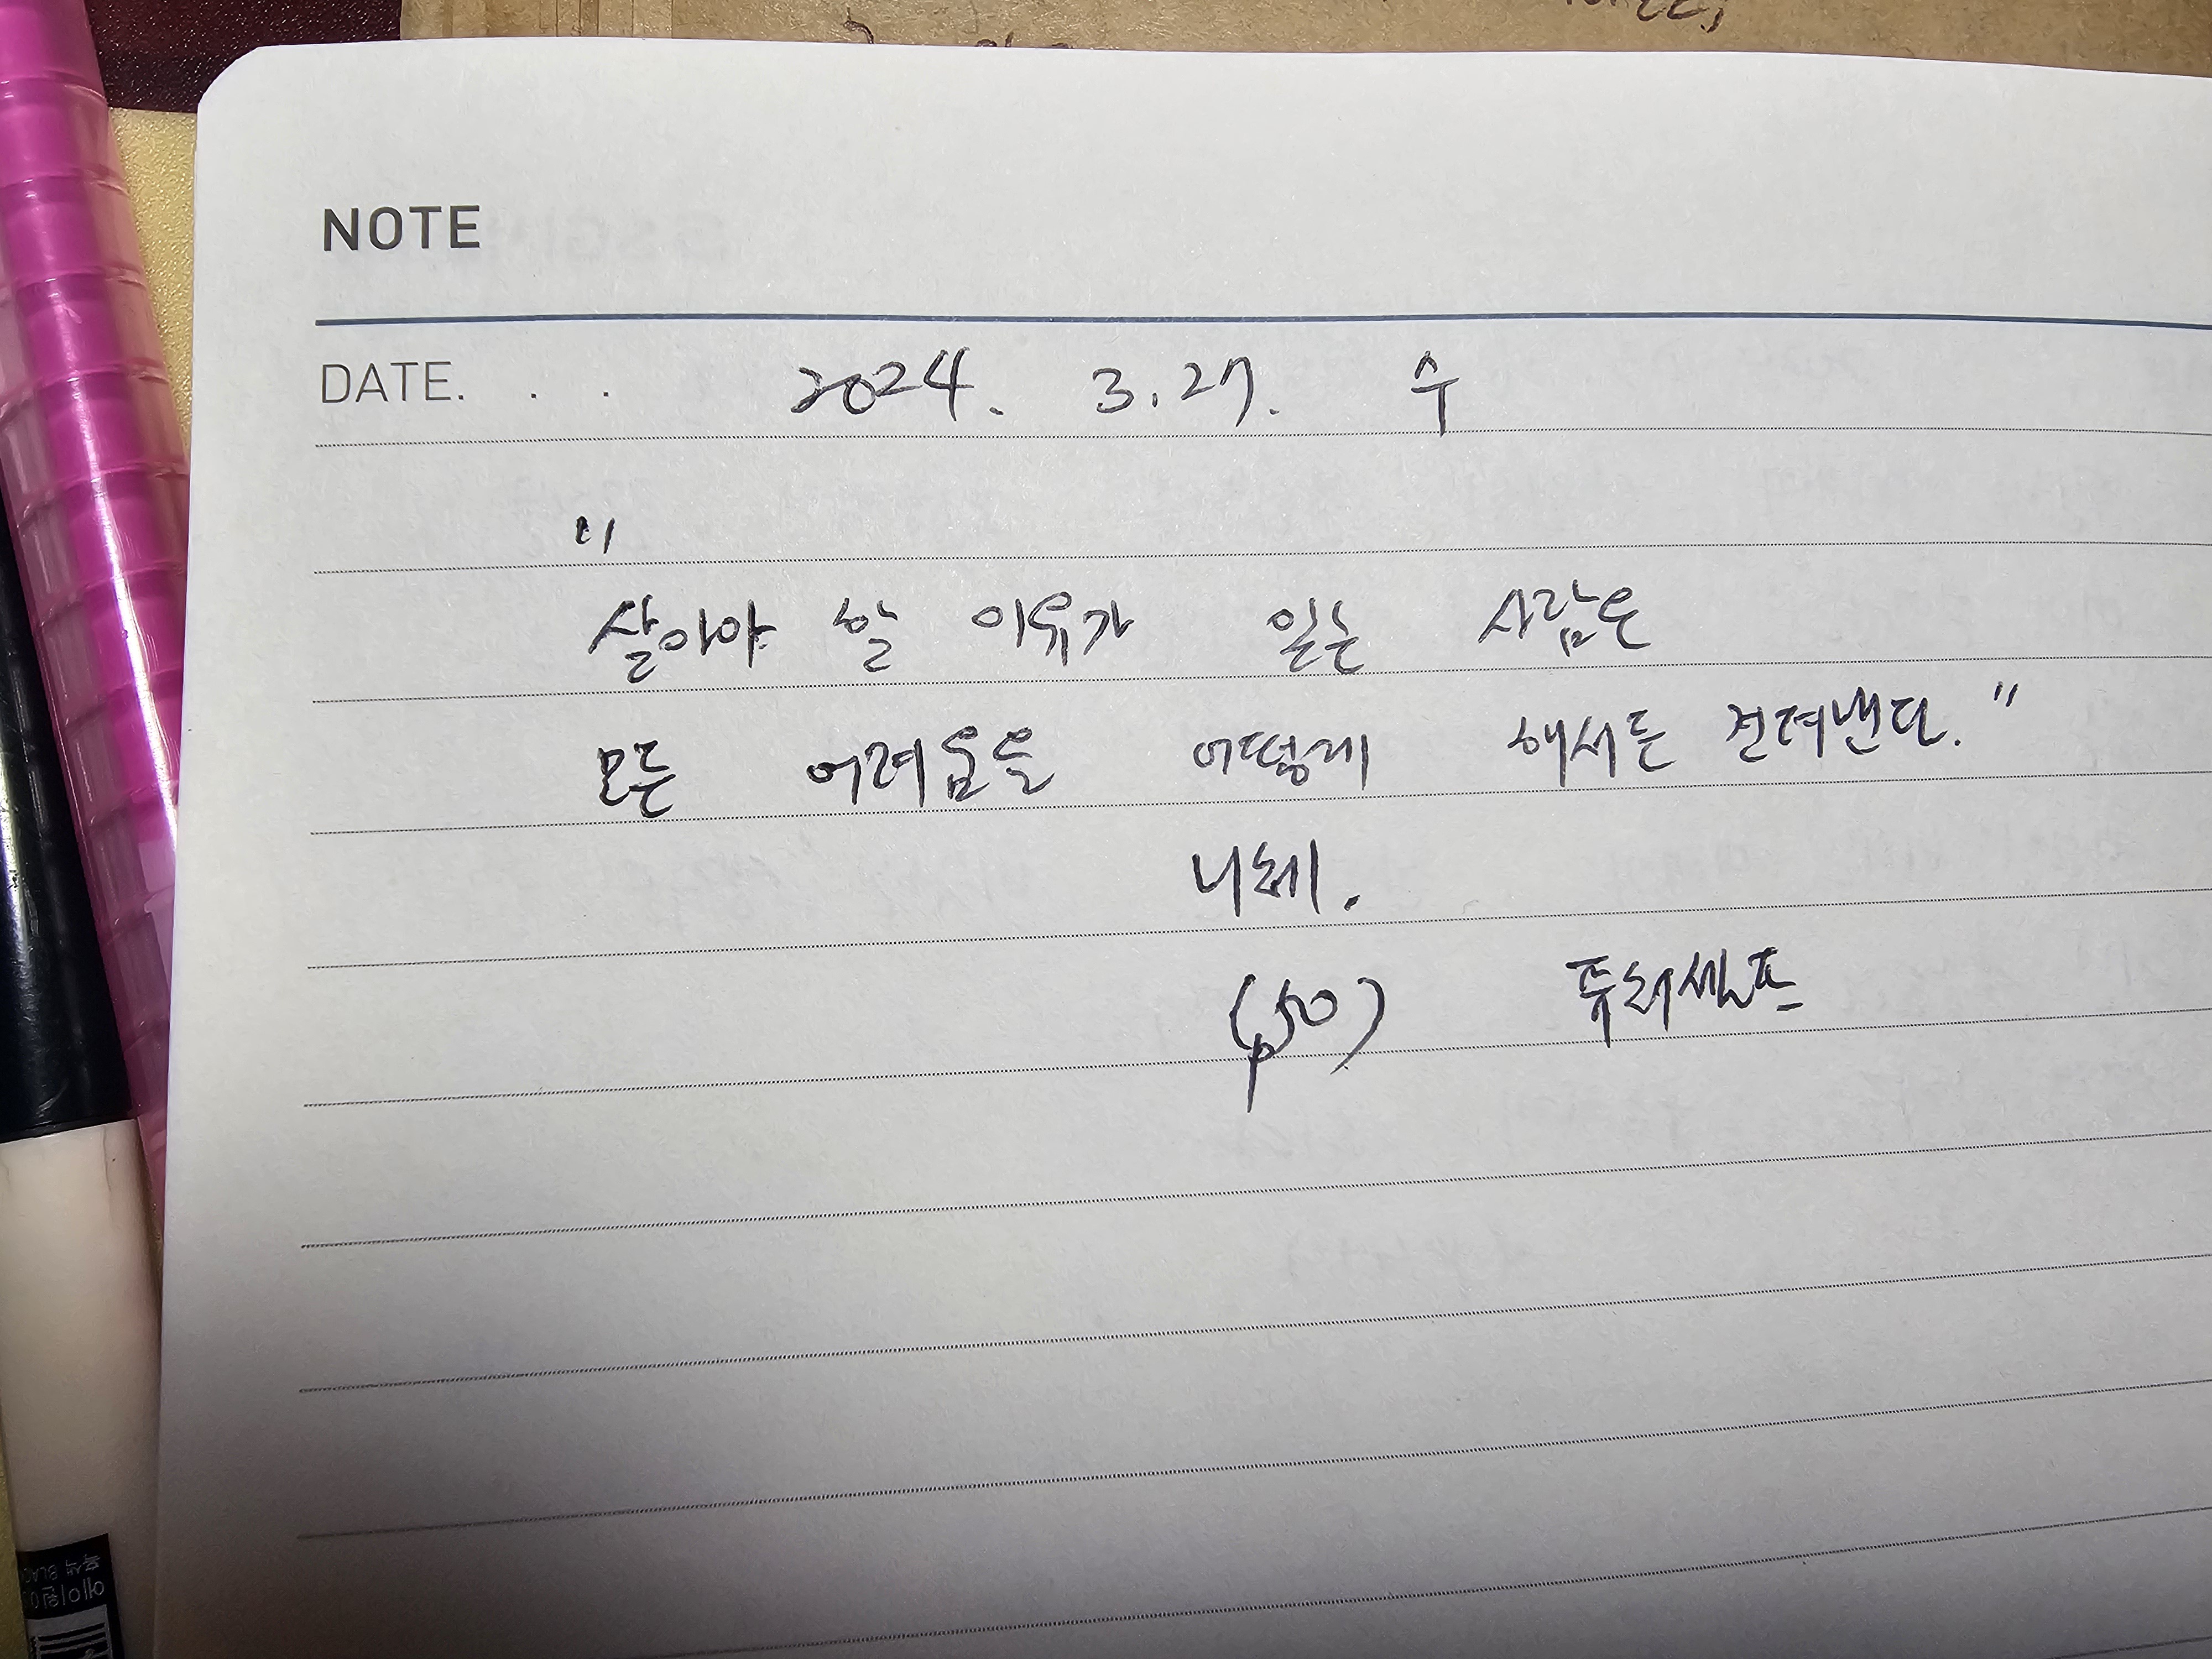 NOTE
DATE. . . 2024. 3. 27. 수
"
살아야 할 이유가 있는 사람은
모든 어려움을 어떻게 해서든 견뎌낸다."
니체.
(p50) 퓨처셀프